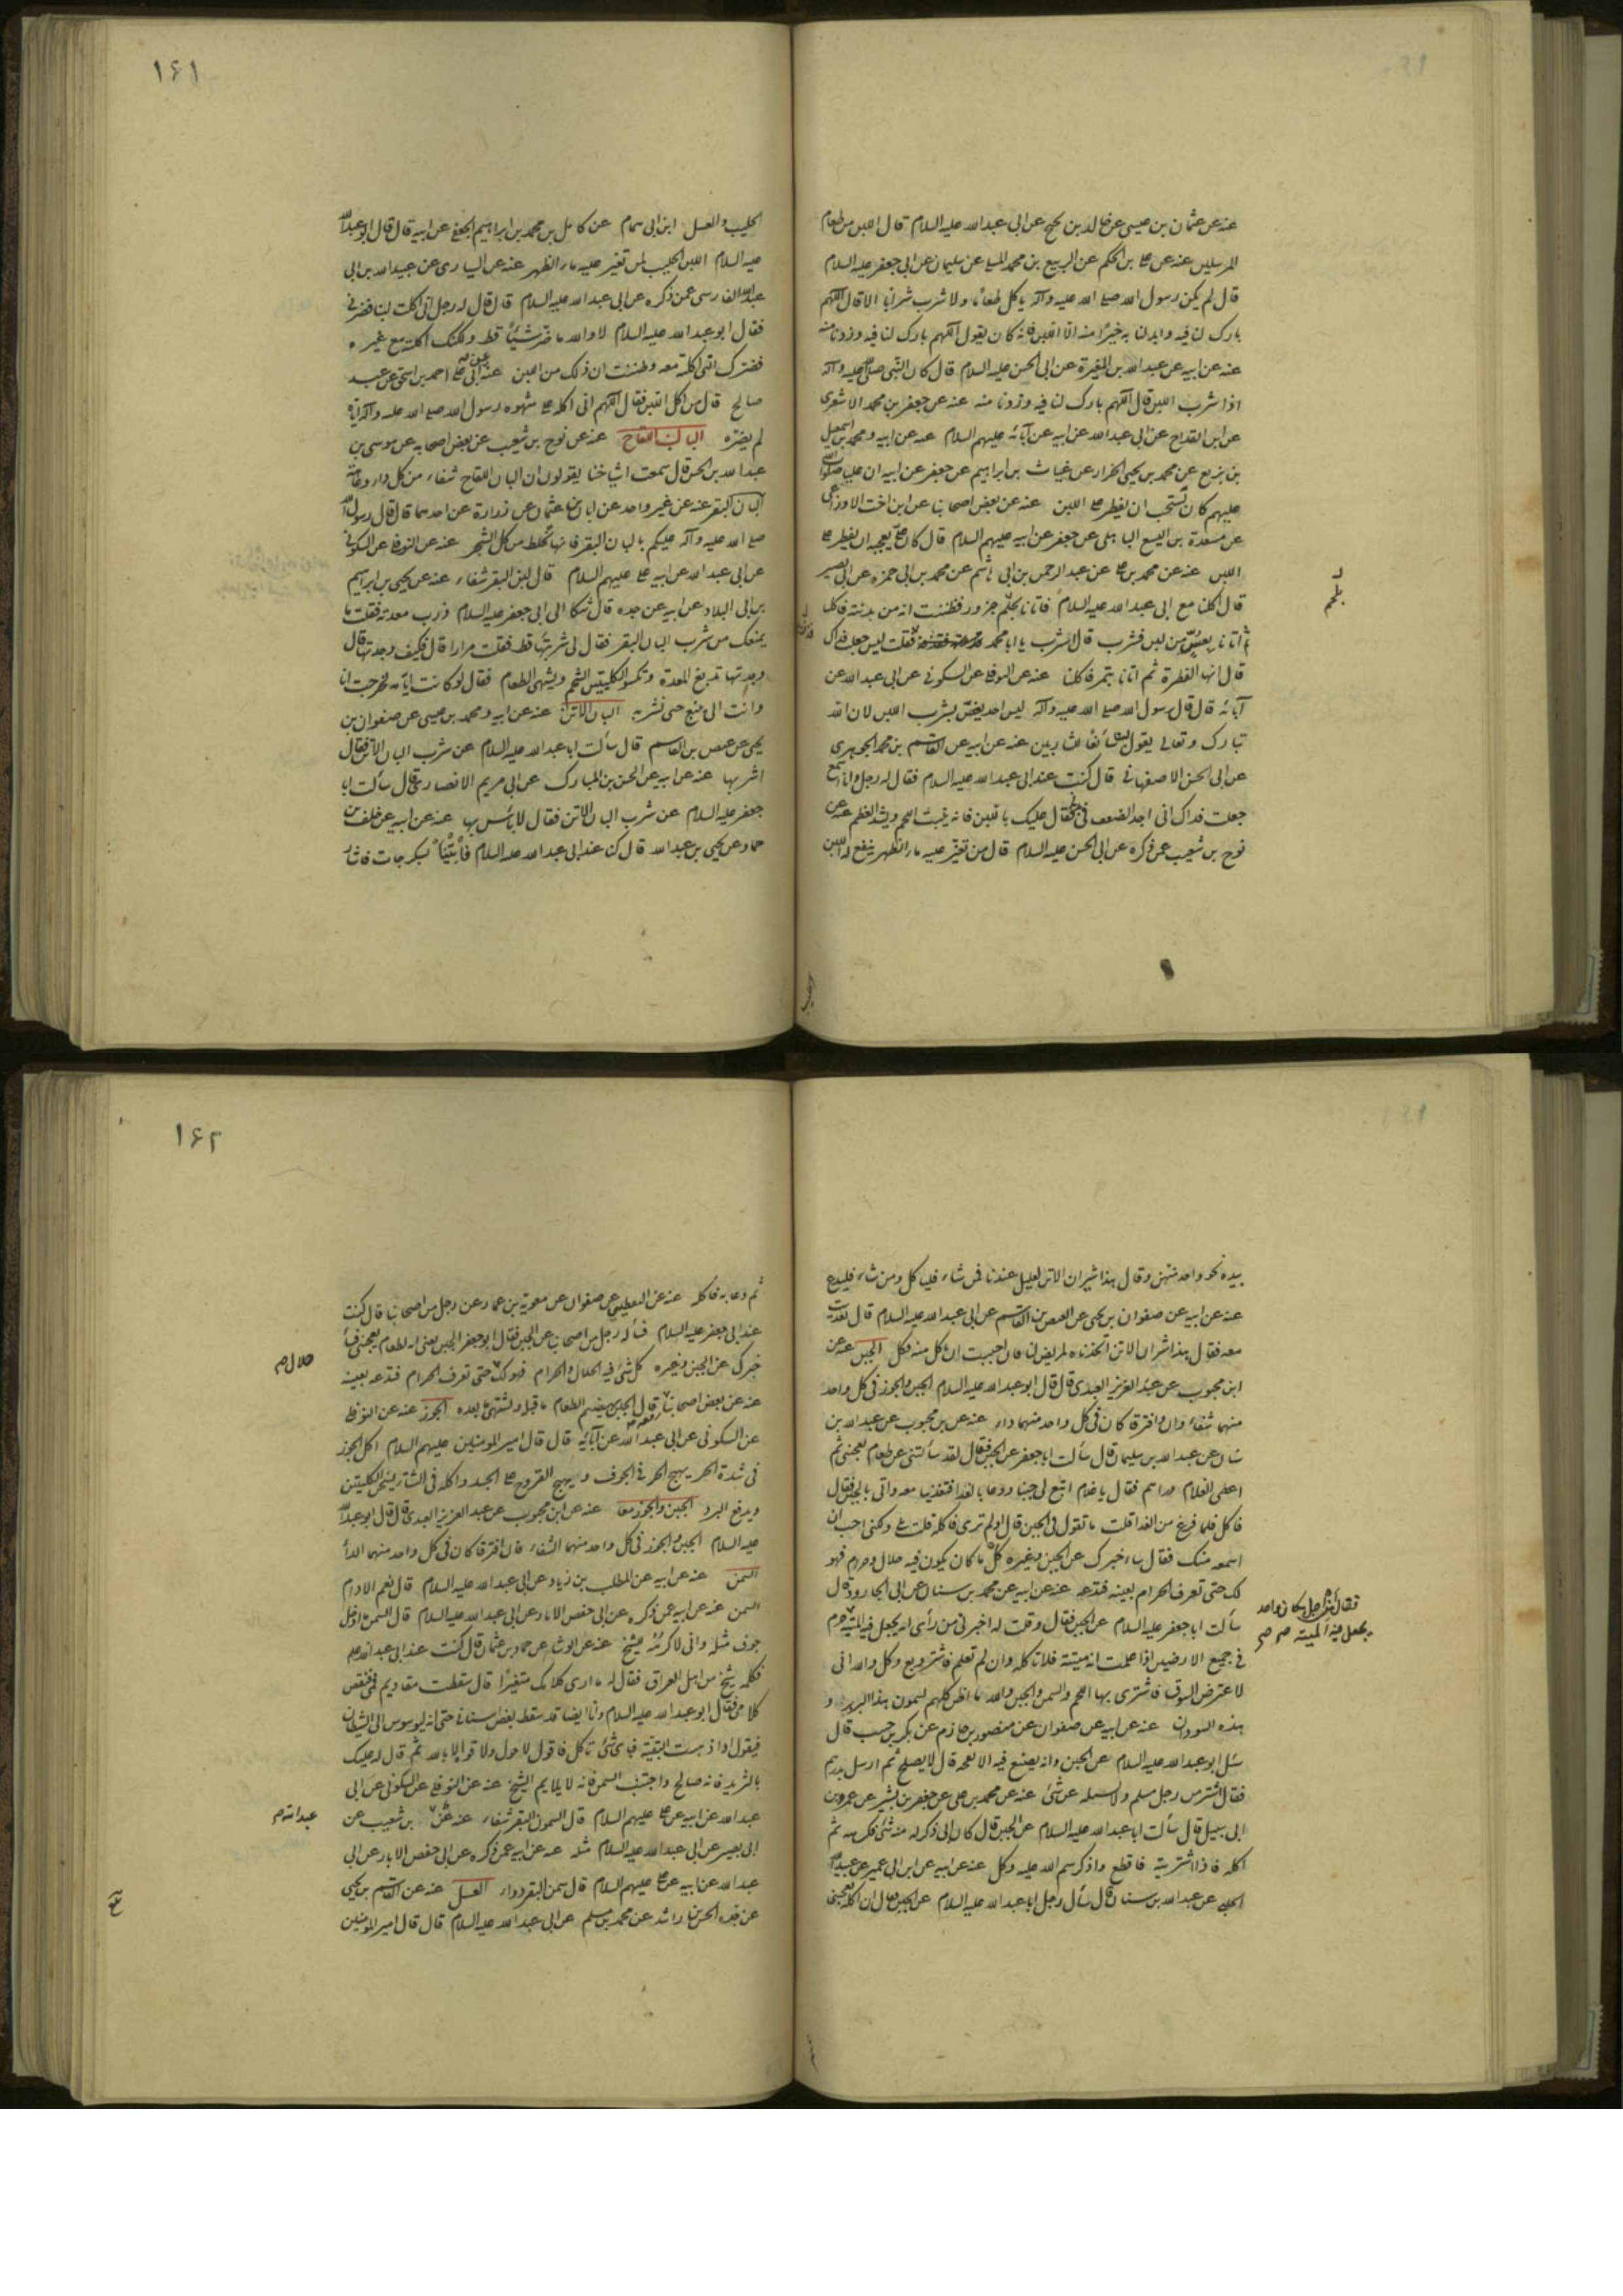 عنه عن عثمان بن عيسى عن خالد بن نجيح عن ابى عبد الله عليه السلام قال اللبن من طعام
المرسلين عنه عن على بن الحكم عن الربيع بن محمد المسلى عن سليمان عن ابى جعفر عليه السلام
قال لم يكن رسول الله صلى الله عليه وآله ياكل طعاما ولا شرب شرابا الا قال اللهم
بارك لنا فيه وابدلنا به خيرا منه الا اللبن فانه كان يقول اللهم بارك لنا فيه وزدنا منه
عنه عن ابيه عن عبد الله بن المغيرة عن ابى الحسن عليه السلام قال كان النبى صلى الله عليه وآله
اذا شرب اللبن قال اللهم بارك لنا فيه وزدنا منه عنه عن جعفر بن محمد الاشعرى
عن ابن القداح عن ابى عبد الله عن ابيه عن آبائه عليهم السلام عنه عن ابيه ومحمد بن اسمعيل
بن بزيع عن محمد بن يحيى الخزاز عن غياث بن ابراهيم عن جعفر عن ابيه ان عليا صلوات الله
عليهم كان يستحب ان يفطر على اللبن عنه عن بعض اصحابنا عن ابن اخت الاوزاعى
عن مسعدة بن اليسع الباهلى عن جعفر عن ابيه عليهم السلام قال كان على يعجبه ان يفطر على
اللبن عنه عن محمد بن على عن عبد الرحمن بن ابى هاشم عن محمد بن ابى حمزه عن ابى بصير
قال اكلنا مع ابى عبد الله عليه السلام فاتانا بلحم جزور فظننت انه من بدنته فاكلنا
ثم اتانا بعس من لبن فشرب قال اشرب يا ابا محمد فقلت لبن جعلت فداك
قال انها الفطرة ثم اتانا بتمر فاكلنا عنه عن النوفلى عن السكونى عن ابى عبد الله عن
آبائه قال قال رسول الله صلى الله عليه وآله ليس احد يغص بشرب اللبن لان الله
تبارك وتعالى يقول لبنا سائغا للشاربين عنه عن ابيه عن القاسم بن محمد الجوهرى
عن ابى الحسن الاصفهانى قال كنت عند ابى عبد الله عليه السلام فقال له رجل وانا اسمع
جعلت فداك انى اجد الضعف فى فقال عليك باللبن فانه ينبت اللحم ويشد العظم عنه عن
نوح بن شعيب عمن ذكره عن ابى الحسن عليه السلام قال من تغير عليه ماء الظهر ينفع له اللبن
بلحم
١٤١
الحليب والعسل ابن ابى همام عن كامل بن محمد بن ابراهيم الجعفى عن ابيه قال قال ابو عبد الله
عليه السلام اللبن الحليب لمن تغير عليه ماء الظهر عنه عن اليسارى عن عبيد الله بن ابى
عبد الله الفارسى عمن ذكره عن ابى عبد الله عليه السلام قال قال له رجل انى اكلت لبنا فضرنى
فقال ابو عبد الله عليه السلام لا والله ما ضر شيئا قط ولكنك اكلته مع غيره
فضرك الذى اكلته معه وظننت ان ذلك من اللبن عنه عن ابى على احمد بن اسحق عن عبد
صالح قال من اكل اللبن فقال اللهم انى اكله على شهوه رسول الله صلى الله عليه وآله اياه
لم يضره البان اللقاح عنه عن نوح بن شعيب عن بعض اصحابه عن موسى بن
عبد الله بن الحسن قال سمعت اشياخنا يقولون ان البان اللقاح شفاء من كل داء وعاهة
البان البقر عنه عن غير واحد عن ابان بن عثمان عن زرارة عن احدهما قال قال رسول الله
صلى الله عليه وآله عليكم بالبان البقر فانها تخلط من كل الشجر عنه عن النوفلى عن السكونى
عن ابى عبد الله عن ابيه عن على عليهم السلام قال لبن البقر شفاء عنه عن يحيى بن ابراهيم
بن ابى البلاد عن ابيه عن جده قال شكا الى ابى جعفر عليه السلام ذرب معدته فقلت ما
يمنعك من شرب البان البقر فقال لى شربتها قط فقلت مرارا قال فكيف وجدتها قال
وجدتها تدبغ المعدة وتكسو الكليتين الشحم ويشهى الطعام فقال لو كانت ايامه لخرجت انا
وانت الى ينبع حتى نشربه البان الاتن عنه عن ابيه ومحمد بن عيسى عن صفوان بن
يحيى عن عيص بن القاسم قال سألت ابا عبد الله عليه السلام عن شرب البان الاتن فقال
اشربها عنه عن ابيه عن الحسن بن المبارك عن ابى مريم الانصارى قال سألت ابا
جعفر عليه السلام عن شرب البان الاتن فقال لا بأس بها عنه عن ابيه عن خلف بن
حماد عن يحيى بن عبد الله قال كنا عند ابى عبد الله عليه السلام فأتينا بسكرجات فاشار
بيده نحو واحد منهن وقال هذا شيراز الاتن لعليل عندنا فمن شاء فلياكل ومن شاء فليدع
عنه عن ابيه عن صفوان بن يحيى عن العيص بن القاسم عن ابى عبد الله عليه السلام قال تغديت
معه فقال هذا شيراز الاتن اتخذناه لمريض لنا فان احببت ان تاكل منه فكل الجبن عنه عن
ابن محبوب عن عبد العزيز العبدى قال قال ابو عبد الله عليه السلام الجبن والجوز فى كل واحد
منهما شفاء وان افترقا كان فى كل واحد منهما داء عنه عن بن محبوب عن عبد الله بن
سنان عن عبد الله بن سليمان قال سألت ابا جعفر عن الجبن فقال لقد سألتنى عن طعام يعجبنى ثم
اعطى الغلام دراهم فقال يا غلام ابتع لى جبنا ودعا بالغدا فتغدينا معه واتى بالجبن فقال
فاكل فلما فرغ من الغدا قلت ما تقول فى الجبن قال اولم ترى فاكله قلت بلى ولكنى احب ان
اسمعه منك فقال ساخبرك عن الجبن وغيره كل ما كان يكون فيه حلال وحرام فهو
لك حتى تعرف الحرام بعينه فتدعه عنه عن ابيه عن محمد بن سنان عن ابى الجارود قال
سألت ابا جعفر عليه السلام عن الجبن فقال وقلت له اخبرنى من رأى انه يجعل فيه الميتة حرم
فى جميع الارضين اذا علمت انه ميتة فلا تاكله وان لم تعلم فاشتر وبع وكل والله انى
لاعترض السوق فاشترى بها اللحم والسمن والجبن والله ما اظن كلهم يسمون هذا البربر و
هذه السودان عنه عن ابيه عن صفوان عن منصور بن حازم عن بكر بن حبيب قال
سئل ابو عبد الله عليه السلام عن الجبن وانه يصنع فيه الانفحه قال لا يصلح ثم ارسل بدرهم
فقال اشتر من رجل مسلم ولا تسئله عن شئ عنه عن محمد بن على عن جعفر بن بشير عن عمرو بن
ابى سبيل قال سألت ابا عبد الله عليه السلام عن الجبن قال كان ابى ذكر له منه شئ فكرهه ثم
اكله فاذا اشتريته فاقطع واذكر اسم الله عليه وكل عنه عن ابيه عن ابن ابى عمير عن عبيد الله
الحلبى عن عبد الله بن سنان قال سأل رجل ابا عبد الله عليه السلام عن الجبن فقال ان اكله يعجبنى
فقال أمن اجل مكان واحد
يجعل فيه الميتة
١٤٢
ثم دعا به فاكله عنه عن اليقطينى عن صفوان عن معوية بن عمار عن رجل من اصحابنا قال كنت
عند ابى جعفر عليه السلام فسأله رجل من اصحابنا عن الجبن فقال ابو جعفر الجبن بعض انه لطعام يعجبنى فسأ
خبرك عن الجبن وغيره كل شئ فيه الحلال والحرام فهو لك حتى تعرف الحرام فتدعه بعينه
عنه عن بعض اصحابنا قال الجبن يهضم الطعام ما قبله ويشتهى ما بعده الجوز عنه عن النوفلى
عن السكونى عن ابى عبد الله عن آبائه قال قال امير المومنين عليهم السلام اكل الجوز
فى شدة الحر يهيج الحر فى الجوف ويهيج القروح على الجسد واكله فى الشتا يسخن الكليتين
ويدفع البرد الجبن والجوز معا عنه عن ابن محبوب عن عبد العزيز العبدى قال قال ابو عبد الله
عليه السلام الجبن والجوز فى كل واحد منهما الشفاء فان افترقا كان فى كل واحد منهما الداء
السمن عنه عن ابيه عن المطلب بن زياد عن ابى عبد الله عليه السلام قال نعم الادام
السمن عنه عن ابيه عمن ذكره عن ابى حفص الابار عن ابى عبد الله عليه السلام قال السمن ما دخل
جوف مثله وانى لاكرهه للشيخ عنه عن الوشاء عن حماد بن عثمان قال كنت عند ابى عبد الله عليه
فكلمه شيخ من اهل العراق فقال له ما ارى كلامك متغيرا قال سقطت مقاديم فمى فنقص
كلامى فقال ابو عبد الله عليه السلام وانا ايضا قد سقط بعض اسنانى حتى انه ليوسوس الى الشيطان
فيقول اذا ذهبت البقية فباى شئ تاكل فاقول لا حول ولا قوة الا بالله ثم قال له عليك
بالثريد فانه صالح واجتنب السمن فانه لا يلايم الشيخ عنه عن النوفلى عن السكونى عن ابى
عبد الله عن ابيه عن على عليهم السلام قال السمون البقر شفاء عنه عن بن شعيب عن
ابى بصير عن ابى عبد الله عليه السلام مثله عنه عن ابيه عمن ذكره عن ابى حفص الابار عن ابى
عبد الله عن ابيه عن على عليهم السلام قال سمن البقر دواء العسل عنه عن القاسم بن يحيى
عن جده الحسن بن راشد عن محمد بن مسلم عن ابى عبد الله عليه السلام قال قال امير المومنين
حلال م
عبد الله م